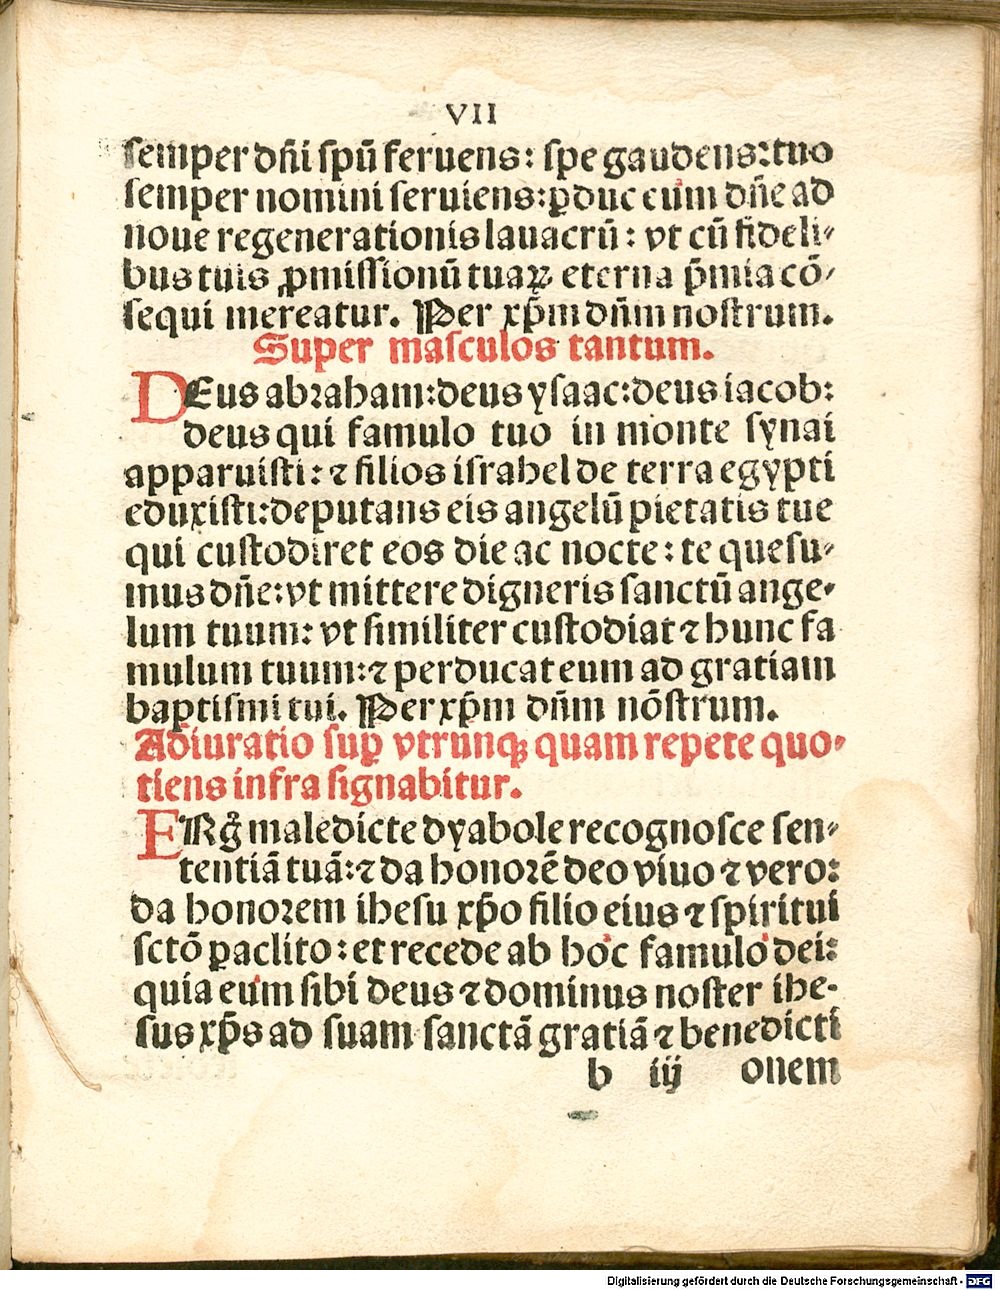 VII
semper dn̄i spū feruens: spe gaudens: tuo
semper nomini seruiens: ꝑduc eum dn̄e ad
noue regenerationis lauacrū: vt cū fideli⸗
bus tuis ꝓmissionū tuaꝝ eterna p̄mia cō⸗
sequi mereatur. Per xp̄m dn̄m nostrum.
Super masculos tantum.
DEus abꝛaham: deus ysaac: deus iacob:
deus qui famulo tuo in monte synai
apparuisti: ⁊ filios israhel de terra egypti
eduxisti: deputans eis angelū pietatis tue
qui custodiret eos die ac nocte: te quesu⸗
mus dn̄e: vt mittere digneris sanctū ange⸗
lum tuum: vt similiter custodiat ⁊ hunc fa
mulum tuum: ⁊ perducat eum ad gratiam
baptismi tui. Per xp̄m dn̄m nōstrum.
Adiuratio suꝑ vtrunqꝫ quam repete quo⸗
tiens infra signabitur.
ERg̊ maledicte dyabole recognosce sen⸗
tentiā tuā: ⁊ da honoꝛē deo viuo ⁊ vero:
da honoꝛem ihesu xp̄o filio eius ⁊ spiritui
sctō ꝑaclito: et recede ab hoc famulo dei:
quia eum sibi deus ⁊ dominus noster ihe⸗
sus xp̄s ad suam sanctā gratiā ⁊ benedicti
b iij onem
Digitalisierung gefördert durch die Deutsche Forschungsgemeinschaft - DFG